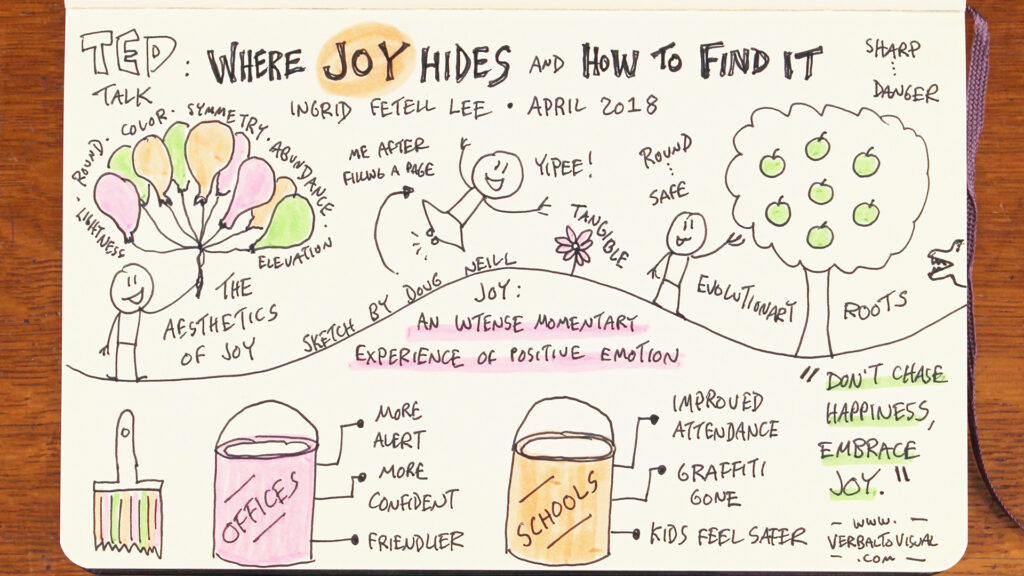 TED TALK : WHERE JOY HIDES AND HOW TO FIND IT
INGRID FETELL LEE • APRIL 2018
LIGHTNESS · ROUND · COLOR · SYMMETRY · ABUNDANCE · ELEVATION
THE
AESTHETICS
OF JOY
ME AFTER
FILLING A PAGE
YIPEE!
TANGIBLE
SKETCH BY DOUG NEILL
JOY:
AN INTENSE MOMENTARY
EXPERIENCE OF POSITIVE EMOTION
ROUND
SAFE
SHARP
DANGER
EVOLUTIONARY ROOTS
OFFICES
MORE
ALERT
MORE
CONFIDENT
FRIENDLIER
SCHOOLS
IMPROVED
ATTENDANCE
GRAFFITI
GONE
KIDS FEEL SAFER
"DON'T CHASE
HAPPINESS,
EMBRACE
JOY."
- WWW. -
VERBALTOVISUAL
- .COM -